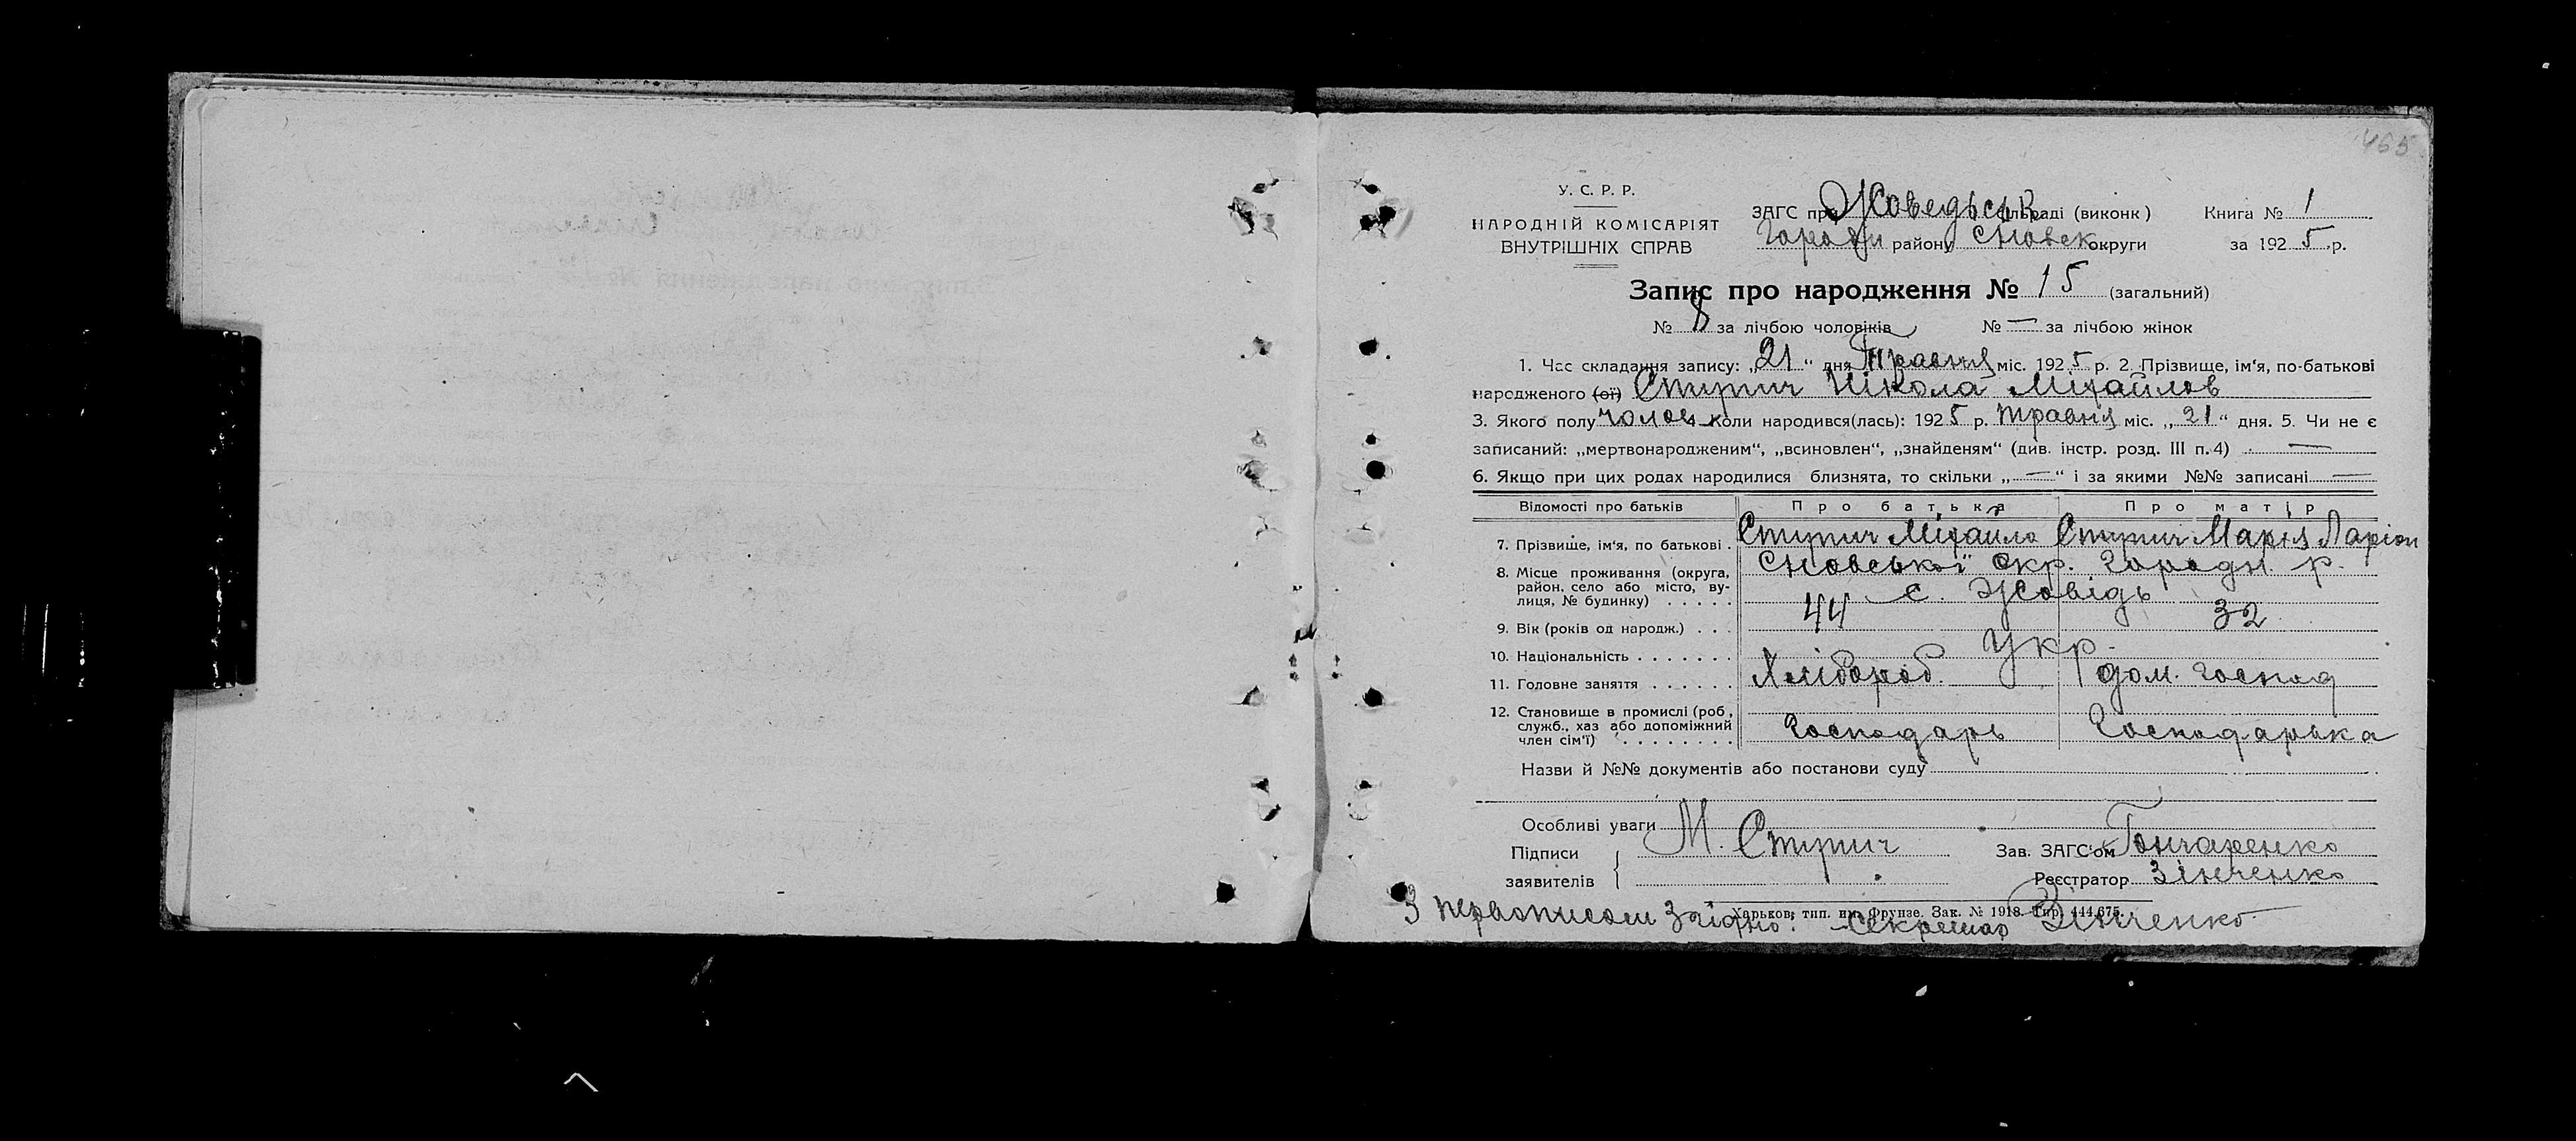 465
У. С. Р. Р.
НАРОДНІЙ КОМІСАРІЯТ
ВНУТРІШНІХ СПРАВ
ЗАГС при Жоведьськ сільраді (виконк) Книга № 1
Городн району Сновськ округи за 1925 р.
Запис про народження № 15 (загальний)
№ 8 за лічбою чоловіків № — за лічбою жінок
1. Час складання запису: „21“ дня Травня міс. 1925 р. 2. Прізвище, ім'я, по-батькові
народженого (ої) Ступич Нікола Міхайлов
3. Якого полу чолов 4. Коли народився(лась): 1925 р. травня міс. „21“ дня. 5. Чи не є
записаний: „мертвонародженим“, „всиновлен“, „знайденям“ (див. інстр. розд. III п. 4) —
6. Якщо при цих родах народилися близнята, то скільки „—“ і за якими №№ записані —
Відомості про батьків Про батька Про матір
7. Прізвище, ім'я, по батькові . Ступич Міхайло Ступич Марія Ларіон
8. Місце проживання (округа, район, село або місто, вулиця, № будинку) . . . . . Сновської Окр. Городн. р.
с. Жовідь
9. Вік (років од народж.) . . . 44 32
10. Національність . . . . . . . Укр.
11. Головне заняття . . . . . . Хлібороб. дом. господ
12. Становище в промислі (роб., служб., хаз або допоміжний член сім'ї) . . . . . . . . Господарь Господарька
Назви й №№ документів або постанови суду
Особливі уваги
Підписи заявителів М. Ступич
Зав. ЗАГС'ом Гончаренко
Реєстратор Зінченко
Харьков, тип. им. Фрунзе. Зак. № 1918. Тир. 444.675.
З первописом згідно: Секретар Зінченко